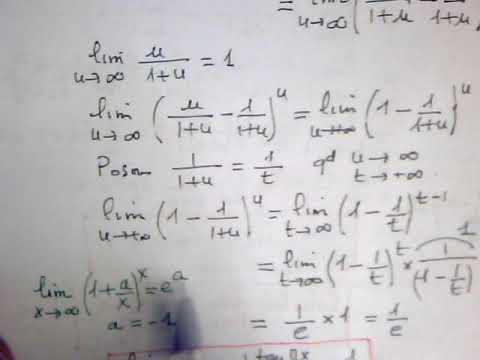 = lim u→∞ (u/(1+u) 1/(1+u)
lim u→∞ u/(1+u) = 1
lim u→∞ (u/(1+u) - 1/(1+u))^u = lim (1 - 1/(1+u))^u
Posons 1/(1+u) = 1/t qd u→∞ t→+∞
lim u→+∞ (1 - 1/(1+u))^u = lim t→∞ (1 - 1/t)^(t-1)
= lim t→∞ (1 - 1/t)^t × 1/(1 - 1/t) 1
lim x→∞ (1 + a/x)^x = e^a
a = -1
= 1/e × 1 = 1/e